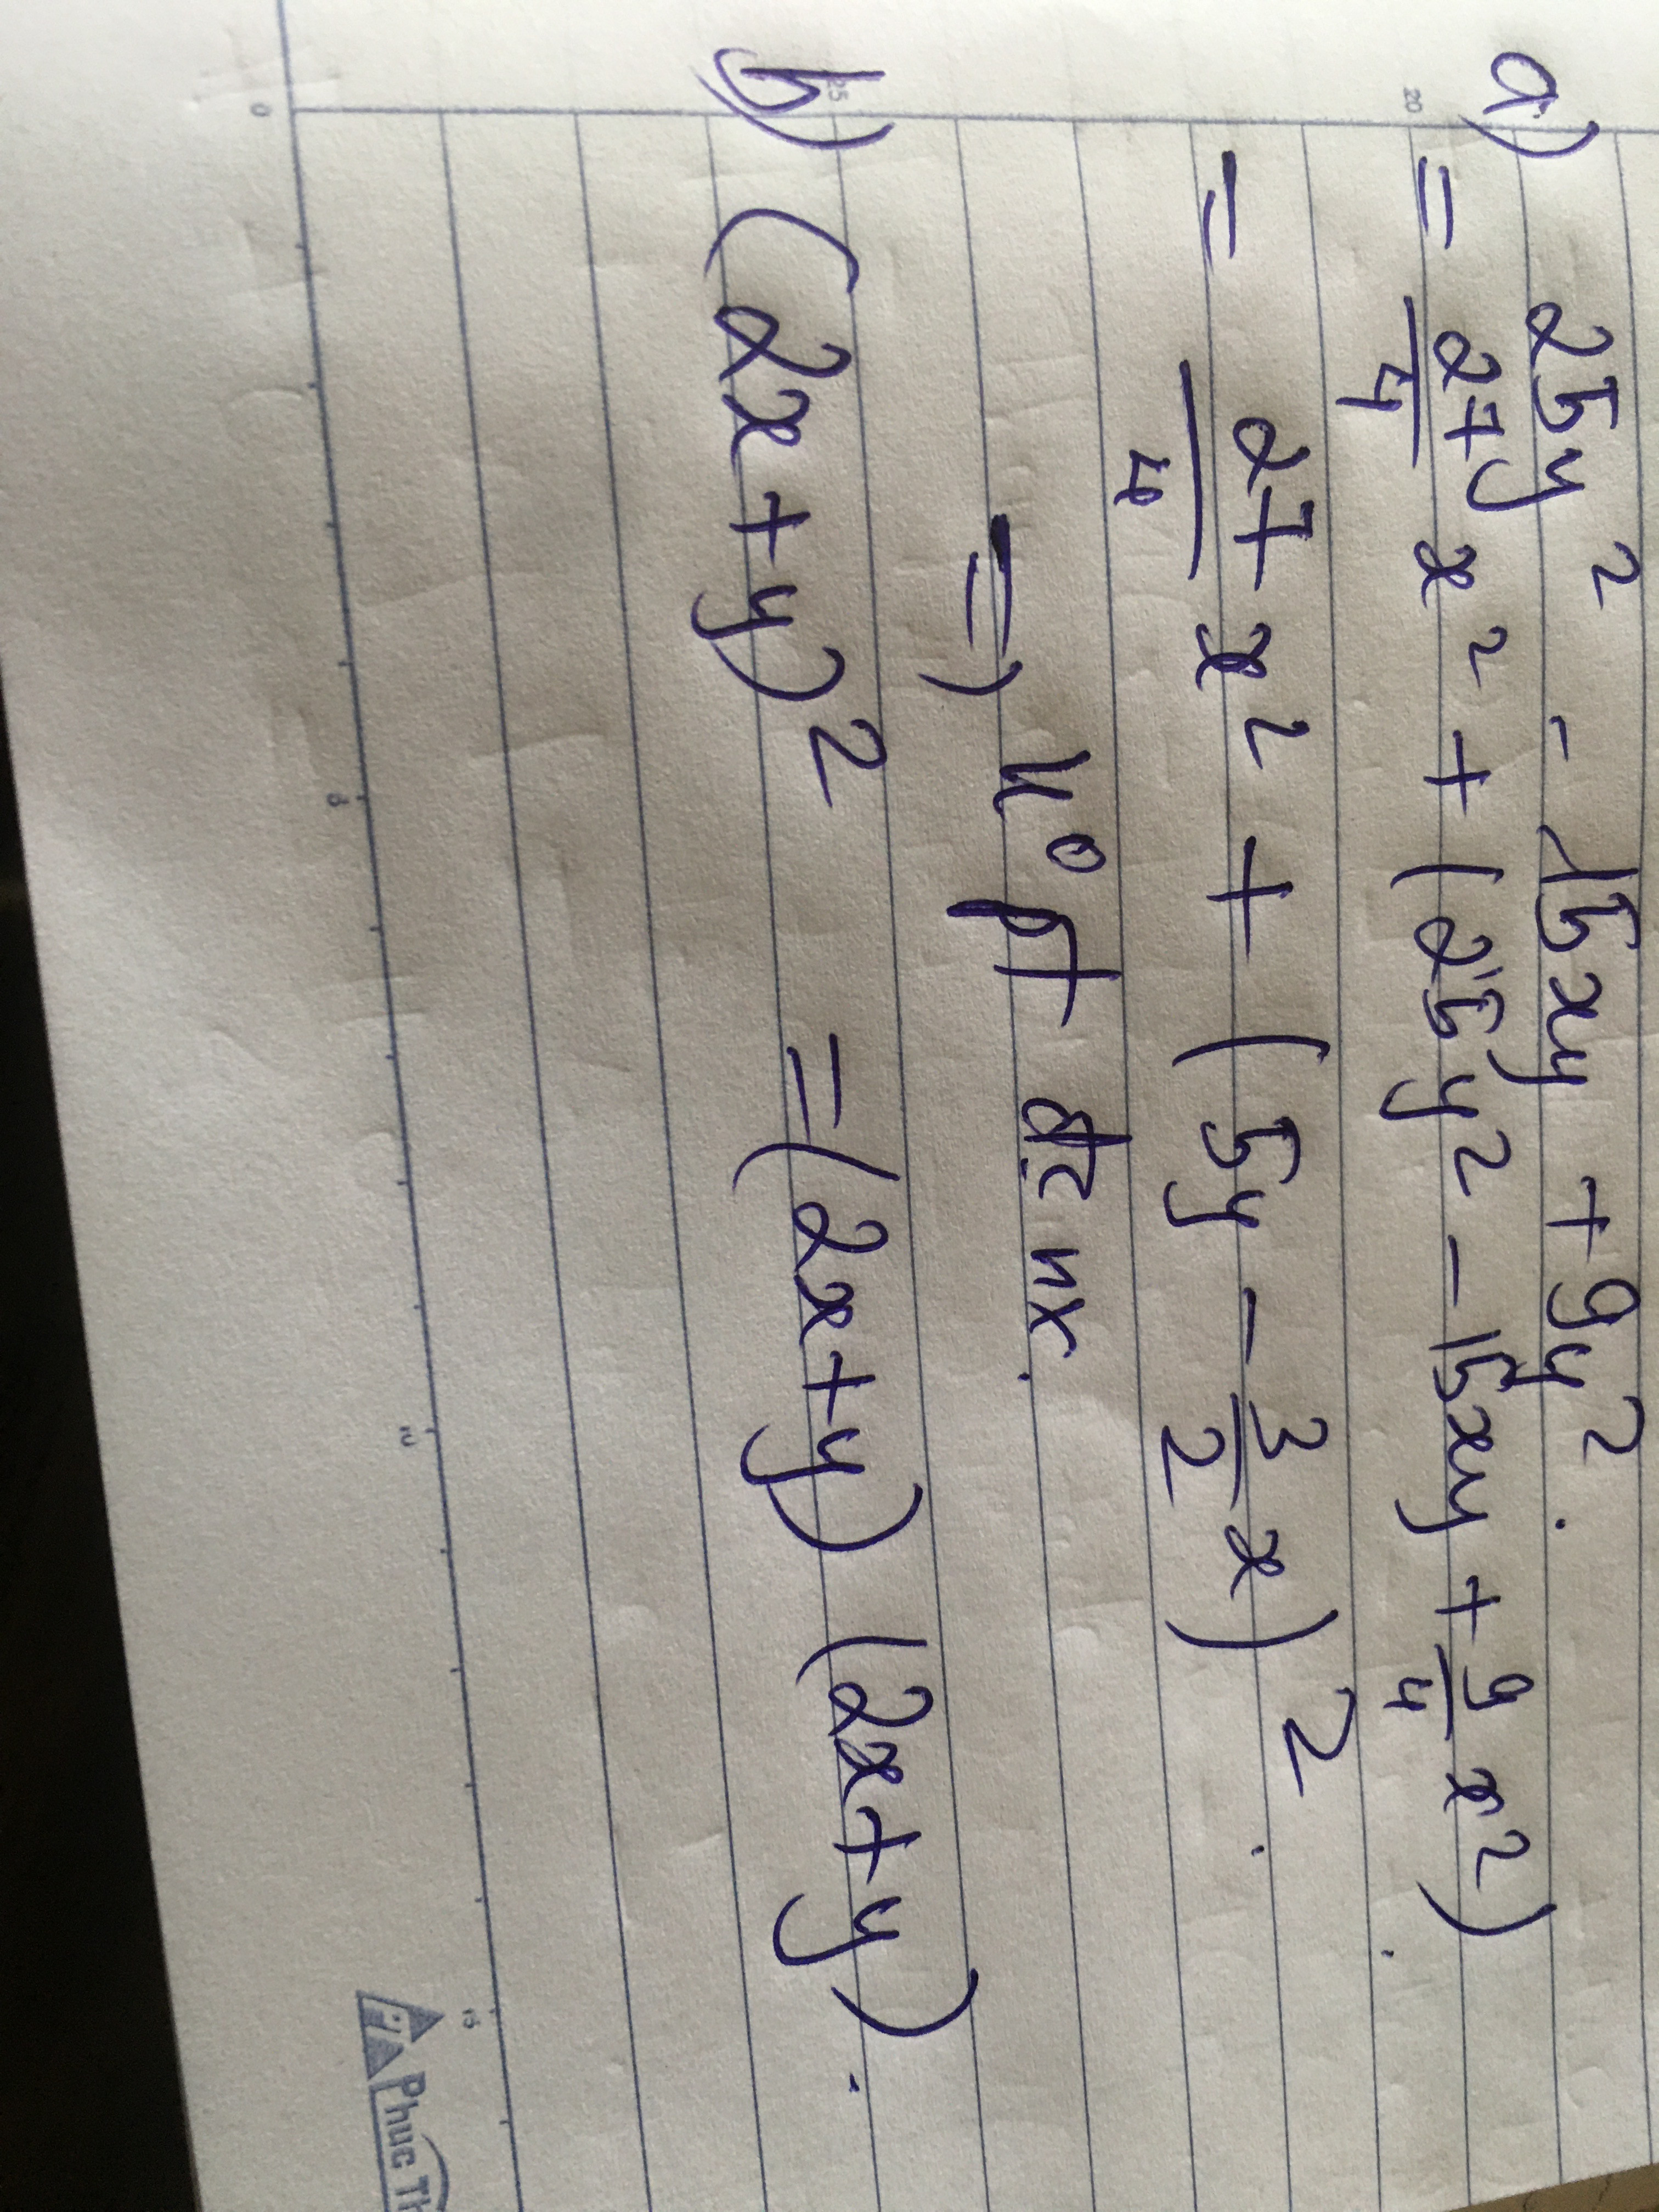 a) 25y² - 15xy + 9y².
= 27/4 x² + (25y² - 15xy + 9/4 x²).
= 27/4 x² + (5y - 3/2 x)².
=) k⁰ pt dc nx.
b) (2x+y)² = (2x+y) (2x+y).
0
5
10
15
20
25
Phuc Th